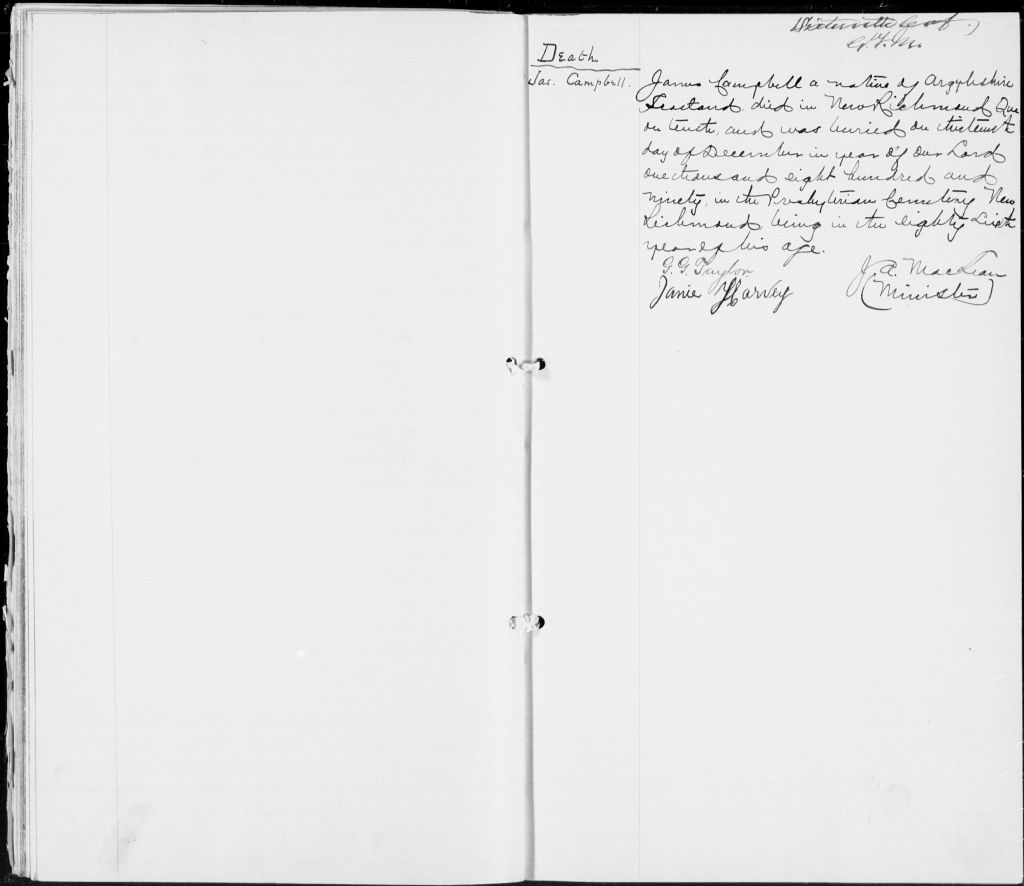 G.F.M.
Death.
Jas. Campbell.
James Campbell a native of Argyleshire
Scotland, died in New Richmond Que
on tenth, and was buried on thirteenth
day of December in year of our Lord
one thousand eight hundred and
ninety, in the Presbyterian Cemetery New
Richmond being in the eighty sixth
year of his age.
G. G. Taylor
J. A. MacLean
Janie Harvey
(Minister)